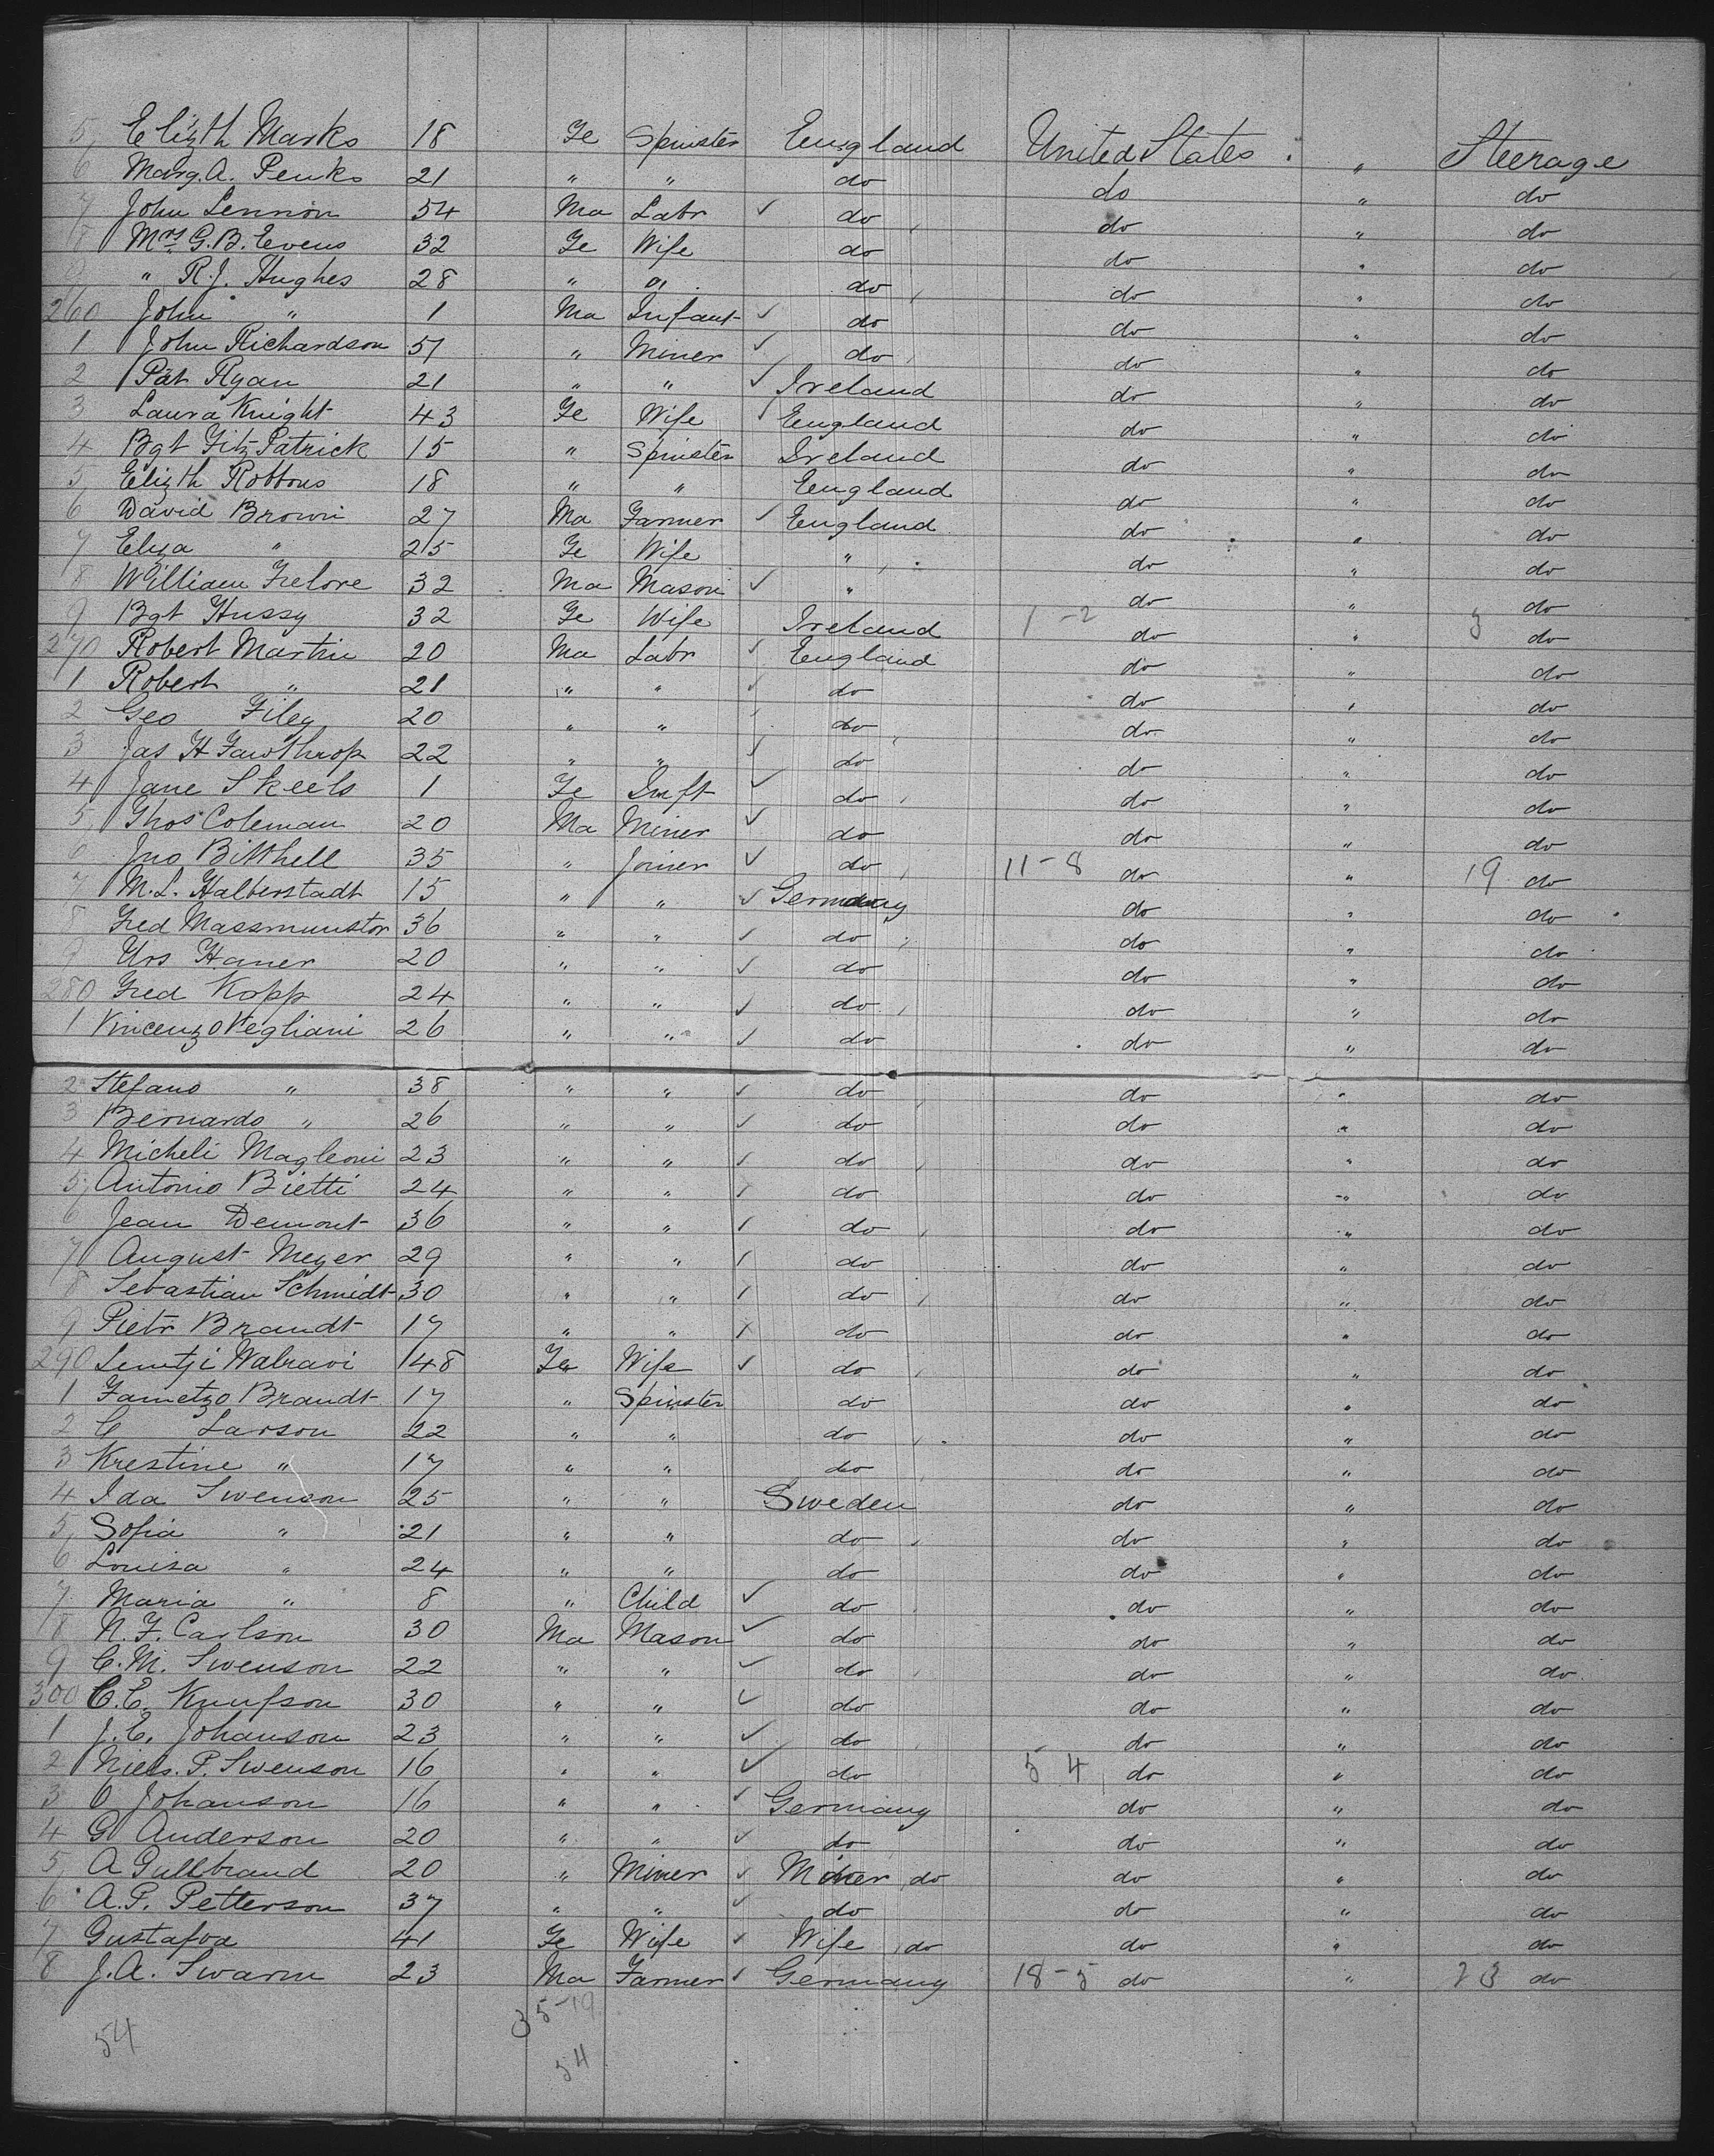 5 Elizth Marks 18 Fe Spinster England United States " Steerage
6 Marg. A. Penks 21 " " do do " do
7 John Lennon 54 Ma Labr ✓ do do " do
8 Mrs G. B. Evens 32 Fe Wife do do " do
9 " R. J. Hughes 28 " " do do " do
260 John " 1 Ma Infant ✓ do do " do
1 John Richardson 51 " Miner ✓ do do " do
2 Pat Ryan 21 " " ✓ Ireland do " do
3 Laura Knight 43 Fe Wife ✓ England do " do
4 Bgt FitzPatrick 15 " Spinster Ireland do " do
5 Elizth Robbons 18 " " England do " do
6 David Brown 27 Ma Farmer ✓ England do " do
7 Eliza " 25 Fe Wife " do " do
8 William Frelove 32 Ma Mason ✓ " do " do
9 Bgt Hussy 32 Fe Wife Ireland 1-2 do " 3 do
270 Robert Martin 20 Ma Labr ✓ England do " do
1 Robert " 21 " " ✓ do do " do
2 Geo Filey 20 " " ✓ do do " do
3 Jas H Fawthrop 22 " " ✓ do do " do
4 Jane Skeels 1 Fe Inft ✓ do do " do
5 Thos Coleman 20 Ma Miner ✓ do do " do
6 Jno Bithell 35 " Joiner ✓ do 11-8 do " 19 do
7 M. L. Halberstadt 15 " " ✓ Germany do " do
8 Fred Massmunstor 36 " " ✓ do do " do
9 Urs Haner 20 " " ✓ do do " do
280 Fred Kopp 24 " " ✓ do do " do
1 Vincenzo Vegliani 26 " " ✓ do do " do
2 Stefano " 38 " " ✓ do do " do
3 Bernardo " 26 " " ✓ do do " do
4 Micheli Magleoni 23 " " ✓ do do " do
5 Antonio Bietti 24 " " ✓ do do " do
6 Jean Demont 36 " " ✓ do do " do
7 August Meyer 29 " " ✓ do do " do
8 Sebastian Schmidt 30 " " ✓ do do " do
9 Pietr Brandt 17 " " ✓ do do " do
290 48 Fe Wife ✓ do do " do
1 Brandt 17 " Spinster do do " do
2 C Larson 22 " " do do " do
3 Krestine " 17 " " do do " do
4 Ida Swenson 25 " " Sweden do " do
5 Sofia " 21 " " do do " do
6 Louisa " 24 " " do do " do
7 Maria " 8 " Child ✓ do do " do
8 N. F. Carlson 30 Ma Mason ✓ do do " do
9 C. M. Swenson 22 " " ✓ do do " do
300 C. C. Knufson 30 " " ✓ do do " do
1 J. E. Johanson 23 " " ✓ do do " do
2 Niels. P. Swenson 16 " " ✓ do 5 4 do " do
3 O Johanson 16 " " ✓ Germany do " do
4 G Anderson 20 " " ✓ do do " do
5 A Gullbrand 20 " Miner ✓ Miner do do " do
6 A. P. Petterson 37 " " ✓ do do " do
7 Gustafva 41 Fe Wife ✓ Wife do do " do
8 J. A. Swarm 23 Ma Farmer ✓ Germany 18-5 do " 23 do
35-19
54
54